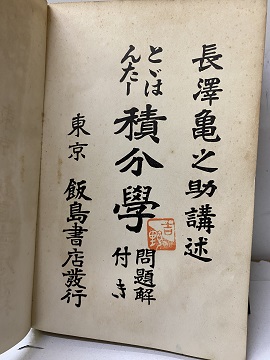 長澤亀之助講述
とどはんたー
積分學
問題解付き
東京
飯島書店發行
吉野